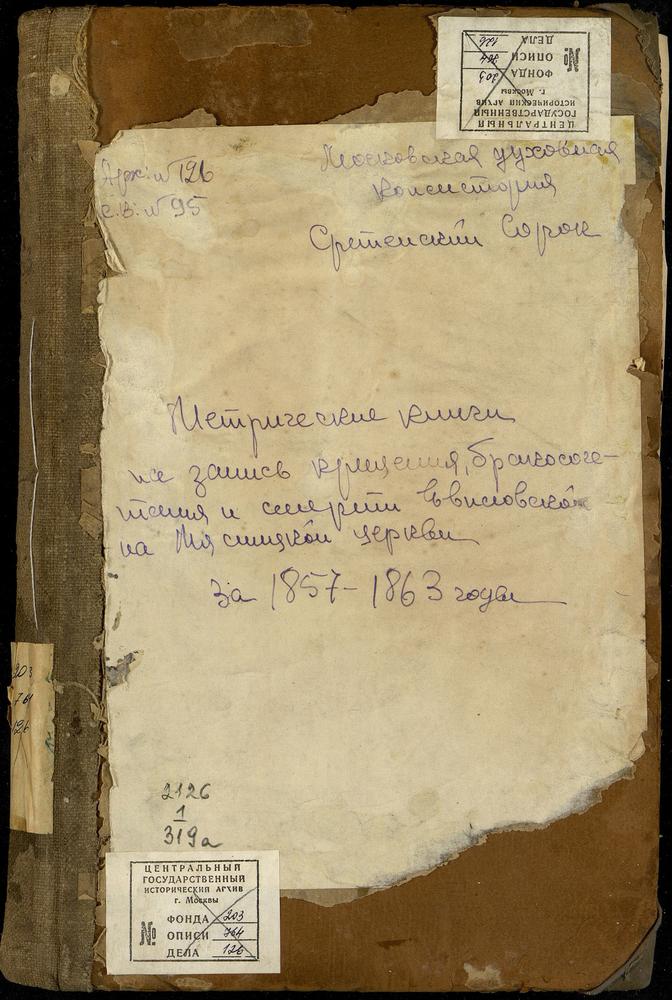 ЦЕНТРАЛЬНЫЙ
ГОСУДАРСТВЕННЫЙ
ИСТОРИЧЕСКИЙ АРХИВ
г. Москвы
№
ФОНДА 203
ОПИСИ 764
ДЕЛА 126
Арх: № 126
с.в: № 95
Московская духовная
консистория
Сретенский Сорок
Метрические книги
на запись крещения, бракосоче-
тания и смерти Евпловской
на Мясницкой церкви
За 1857-1863 годы
203
764
126
2126
1
319а
ЦЕНТРАЛЬНЫЙ
ГОСУДАРСТВЕННЫЙ
ИСТОРИЧЕСКИЙ АРХИВ
г. Москвы
№
ФОНДА 203
ОПИСИ 764
ДЕЛА 126